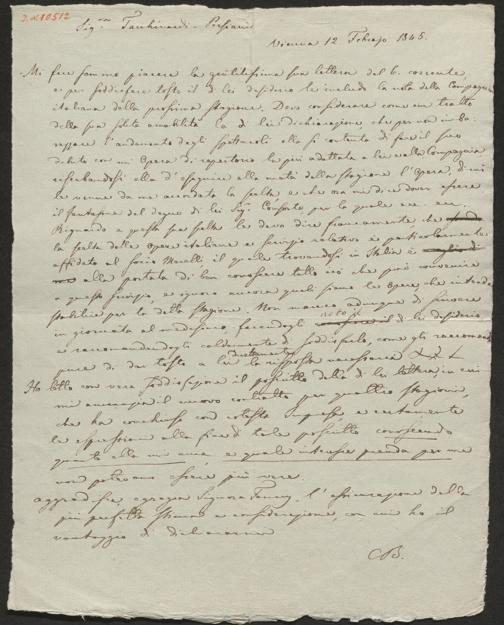 I.N. 10512
Sig.ra Tacchinardi-Persiani
Vienna 12 Febrajo 1845.
Mi fece sommo piacere la gentilissima sua lettera del 6. corrente,
e per soddisfare tosto il di lei desiderio le includo la nota della Compagnia
italiana della prossima stagione. Devo considerare come un tratto
della sua solita amabilità la di lei dichiarazione, che per non imba-
razzare l'andamento degli spettacoli ella si contenta di fare il suo
debutto con un' Opera di repertorio la più adattata a lei ed alla Compagnia
riserbandosi ella d'eseguire alla metà della stagione l'Opera, di cui
le venne da me accordata la scelta e che ora mi dice dover essere
il fantasma del degno di lei Sig.r Consorte per la quale
Riguardo a questa sua scelta le devo dire francamente che
la scelta delle opere italiane e  relativo è particolarmente
affidato al socio Merelli il quale trovandosi in Italia è
alla portata di ben conoscere tutto ciò che può convenire
a questo  e ignoro ancora quali siano le Opere che intende
stabilire per la detta stagione. Non manco adunque di scrivere
in giornata al medesimo, facendogli noto il di lei desiderio
e raccomandandogli caldamente di soddisfarlo, come gli raccomando
pure di dar tosto a lei direttamente la risposta necessaria
Ho letto con vera soddisfazione il poscritto della di lei lettera, in cui
mi annunzia il nuovo contratto per quattro stagioni,
che ha conchiuso con cotesta impresa e certamente
le espressioni alla fine di tale poscritto conoscendo
quanto ella mi ama, e quale interesse prenda per me
non potevano essere più vere.
Aggradisca, egregia Signora Fanny, l'assicurazione della
più perfetta stima e considerazione con cui ho il
vantaggio di dichiararmi
CB.